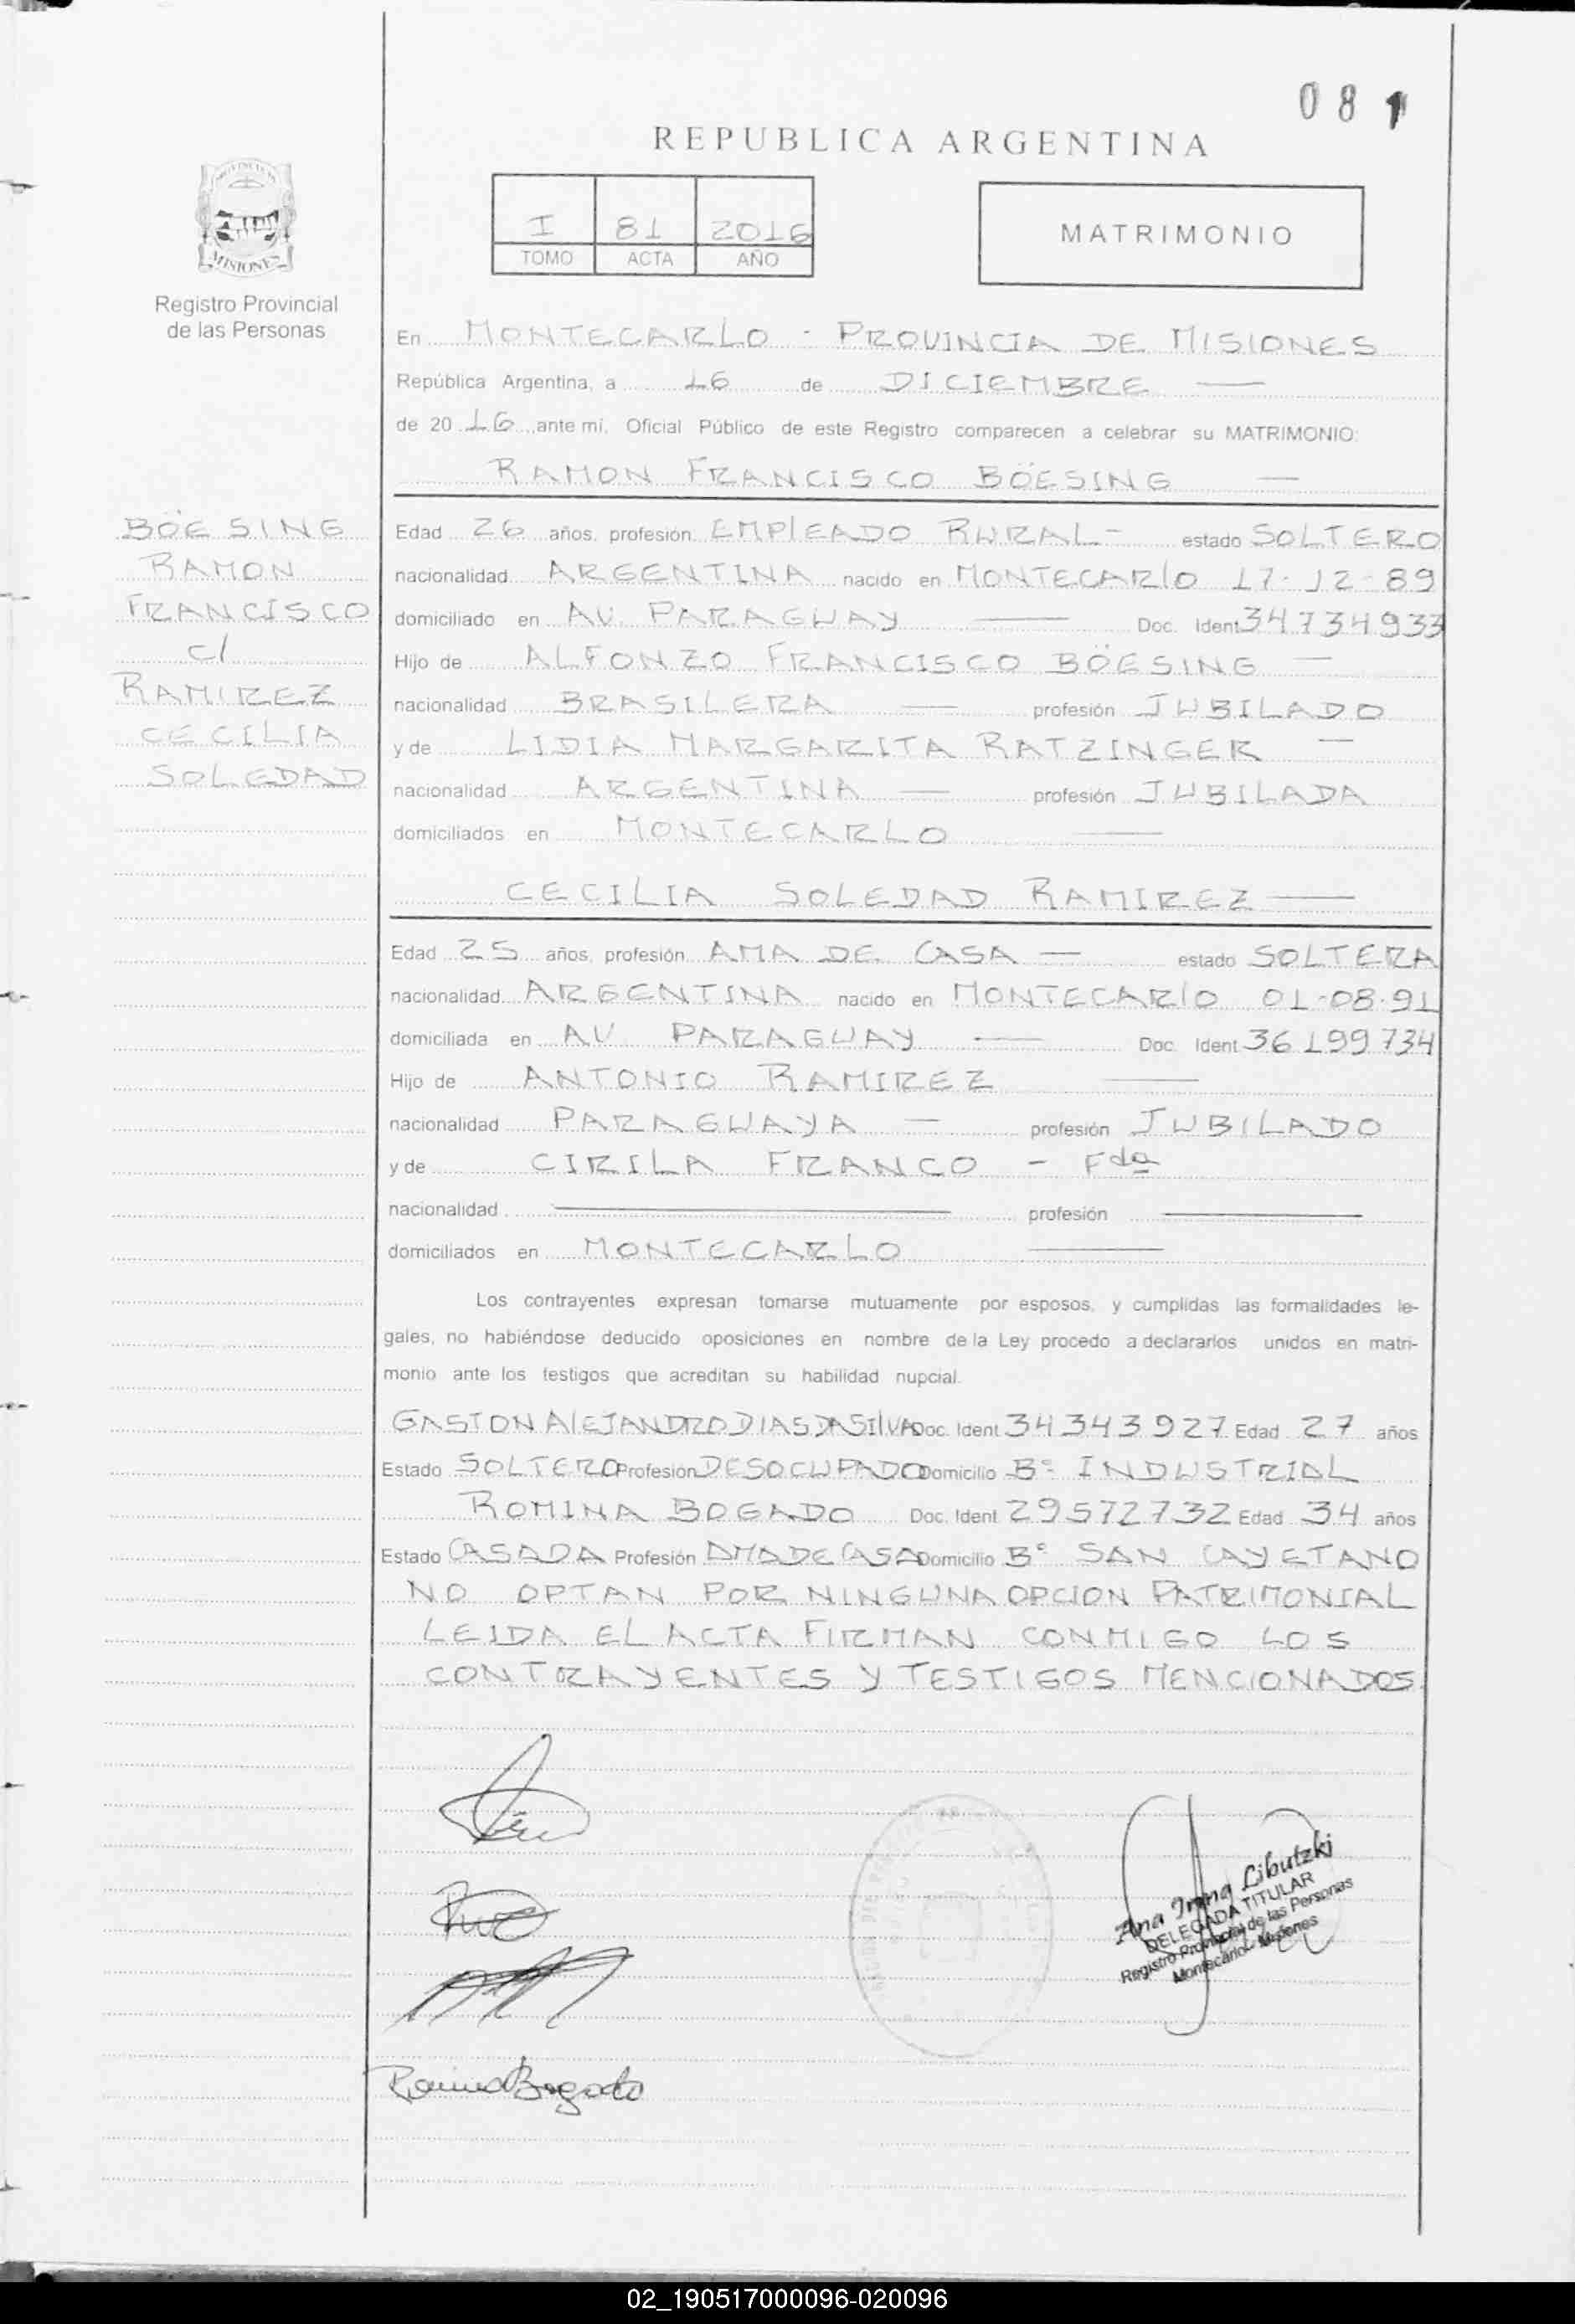 081
REPUBLICA ARGENTINA
I 81 2016
TOMO ACTA AÑO
MATRIMONIO
PROVINCIA
MISIONES
Registro Provincial
de las Personas
En MONTECARLO - PROVINCIA DE MISIONES
República Argentina, a 16 de DICIEMBRE —
de 20 16 ante mí, Oficial Público de este Registro comparecen a celebrar su MATRIMONIO:
RAMON FRANCISCO BÖESING —
BÖESING
RAMON
FRANCISCO
c/
RAMIREZ
CECILIA
SOLEDAD
Edad 26 años, profesión EMPlEADO RURAL- estado SOLTERO
nacionalidad ARGENTINA nacido en MONTECARlO 17-12-89
domiciliado en AV. PARAGUAY — Doc. Ident 34734933
Hijo de ALFONZO FRANCISCO BÖESING —
nacionalidad BRASILERA — profesión JUBILADO
y de LIDIA MARGARITA RATZINGER —
nacionalidad ARGENTINA — profesión JUBILADA
domiciliados en MONTECARLO —
CECILIA SOLEDAD RAMIREZ —
Edad 25 años, profesión AMA DE CASA — estado SOLTERA
nacionalidad ARGENTINA nacido en MONTECARlO 01-08-91
domiciliada en AV PARAGUAY — Doc. Ident 36199734
Hijo de ANTONIO RAMIREZ —
nacionalidad PARAGUAYA — profesión JUBILADO
y de CIRILA FRANCO - Fda
nacionalidad — profesión —
domiciliados en MONTECARLO —
Los contrayentes expresan tomarse mutuamente por esposos, y cumplidas las formalidades le-
gales, no habiéndose deducido oposiciones en nombre de la Ley procedo a declararlos unidos en matri-
monio ante los testigos que acreditan su habilidad nupcial.
GASTON AlEJANDRO DIAS DA SIlVA Doc. Ident 34343927 Edad 27 años
Estado SOLTERO Profesión DESOCUPADO Domicilio Bº INDUSTRIAL
ROMINA BOGADO Doc. Ident 29572732 Edad 34 años
Estado CASADA Profesión AMA DE CASA Domicilio Bº SAN CAYETANO
NO OPTAN POR NINGUNA OPCION PATRIMONIAL
LEIDA EL ACTA FIRMAN CONMIGO LOS
CONTRAYENTES Y TESTIGOS MENCIONADOS.
Ana Irma Libutzki
DELEGADA TITULAR
Registro Provincial de las Personas
Montecarlo - Misiones
Romina Bogado
02_190517000096-020096